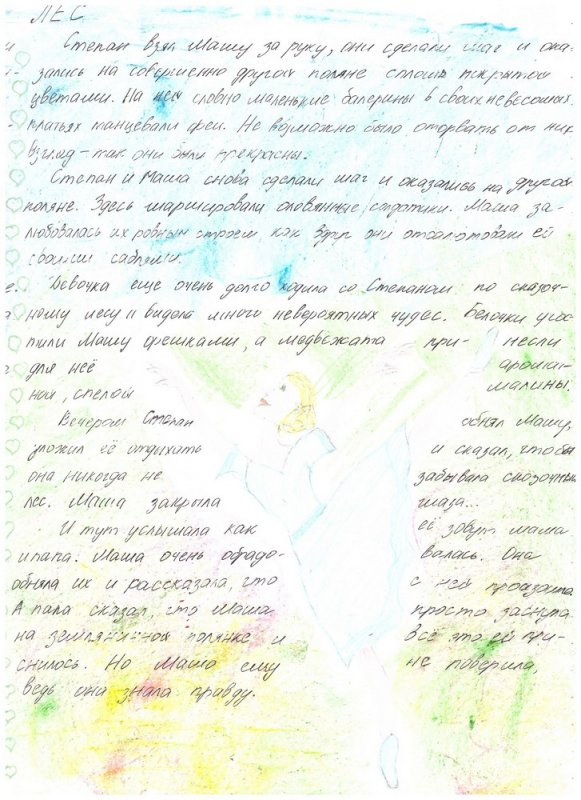 ЛЕС
Степан взял Машу за руку, они сделали шаг и ока-
зались на совершенно другой поляне сплошь покрытой
цветами. На ней словно маленькие балерины в своих невесомых
платьях танцевали феи. Не возможно было оторвать от них
взгляд - так они были прекрасны.
Степан и Маша снова сделали шаг и оказались на другой
поляне. Здесь маршировали оловянные солдатики. Маша за-
любовалась их ровным строем, как вдруг они отсалютовали ей
своими саблями.
Девочка еще очень долго ходила со Степаном по сказоч-
ному лесу и видела много невероятных чудес. Белочки угос-
тили Машу орешками, а медвежата при- несли
для неё аромат-
ной, спелой малины.
Вечером Степан обнял Машу,
уложил её отдыхать и сказал, чтобы
она никогда не забывала сказочный
лес. Маша закрыла глаза...
И тут услышала как её зовут мама
и папа. Маша очень обрадо- валась. Она
обняла их и рассказала, что с ней произошло
А папа сказал, что Маша просто заснула
на земляничной полянке и всё это ей при-
снилось. Но Маша ему не поверила,
ведь она знала правду.